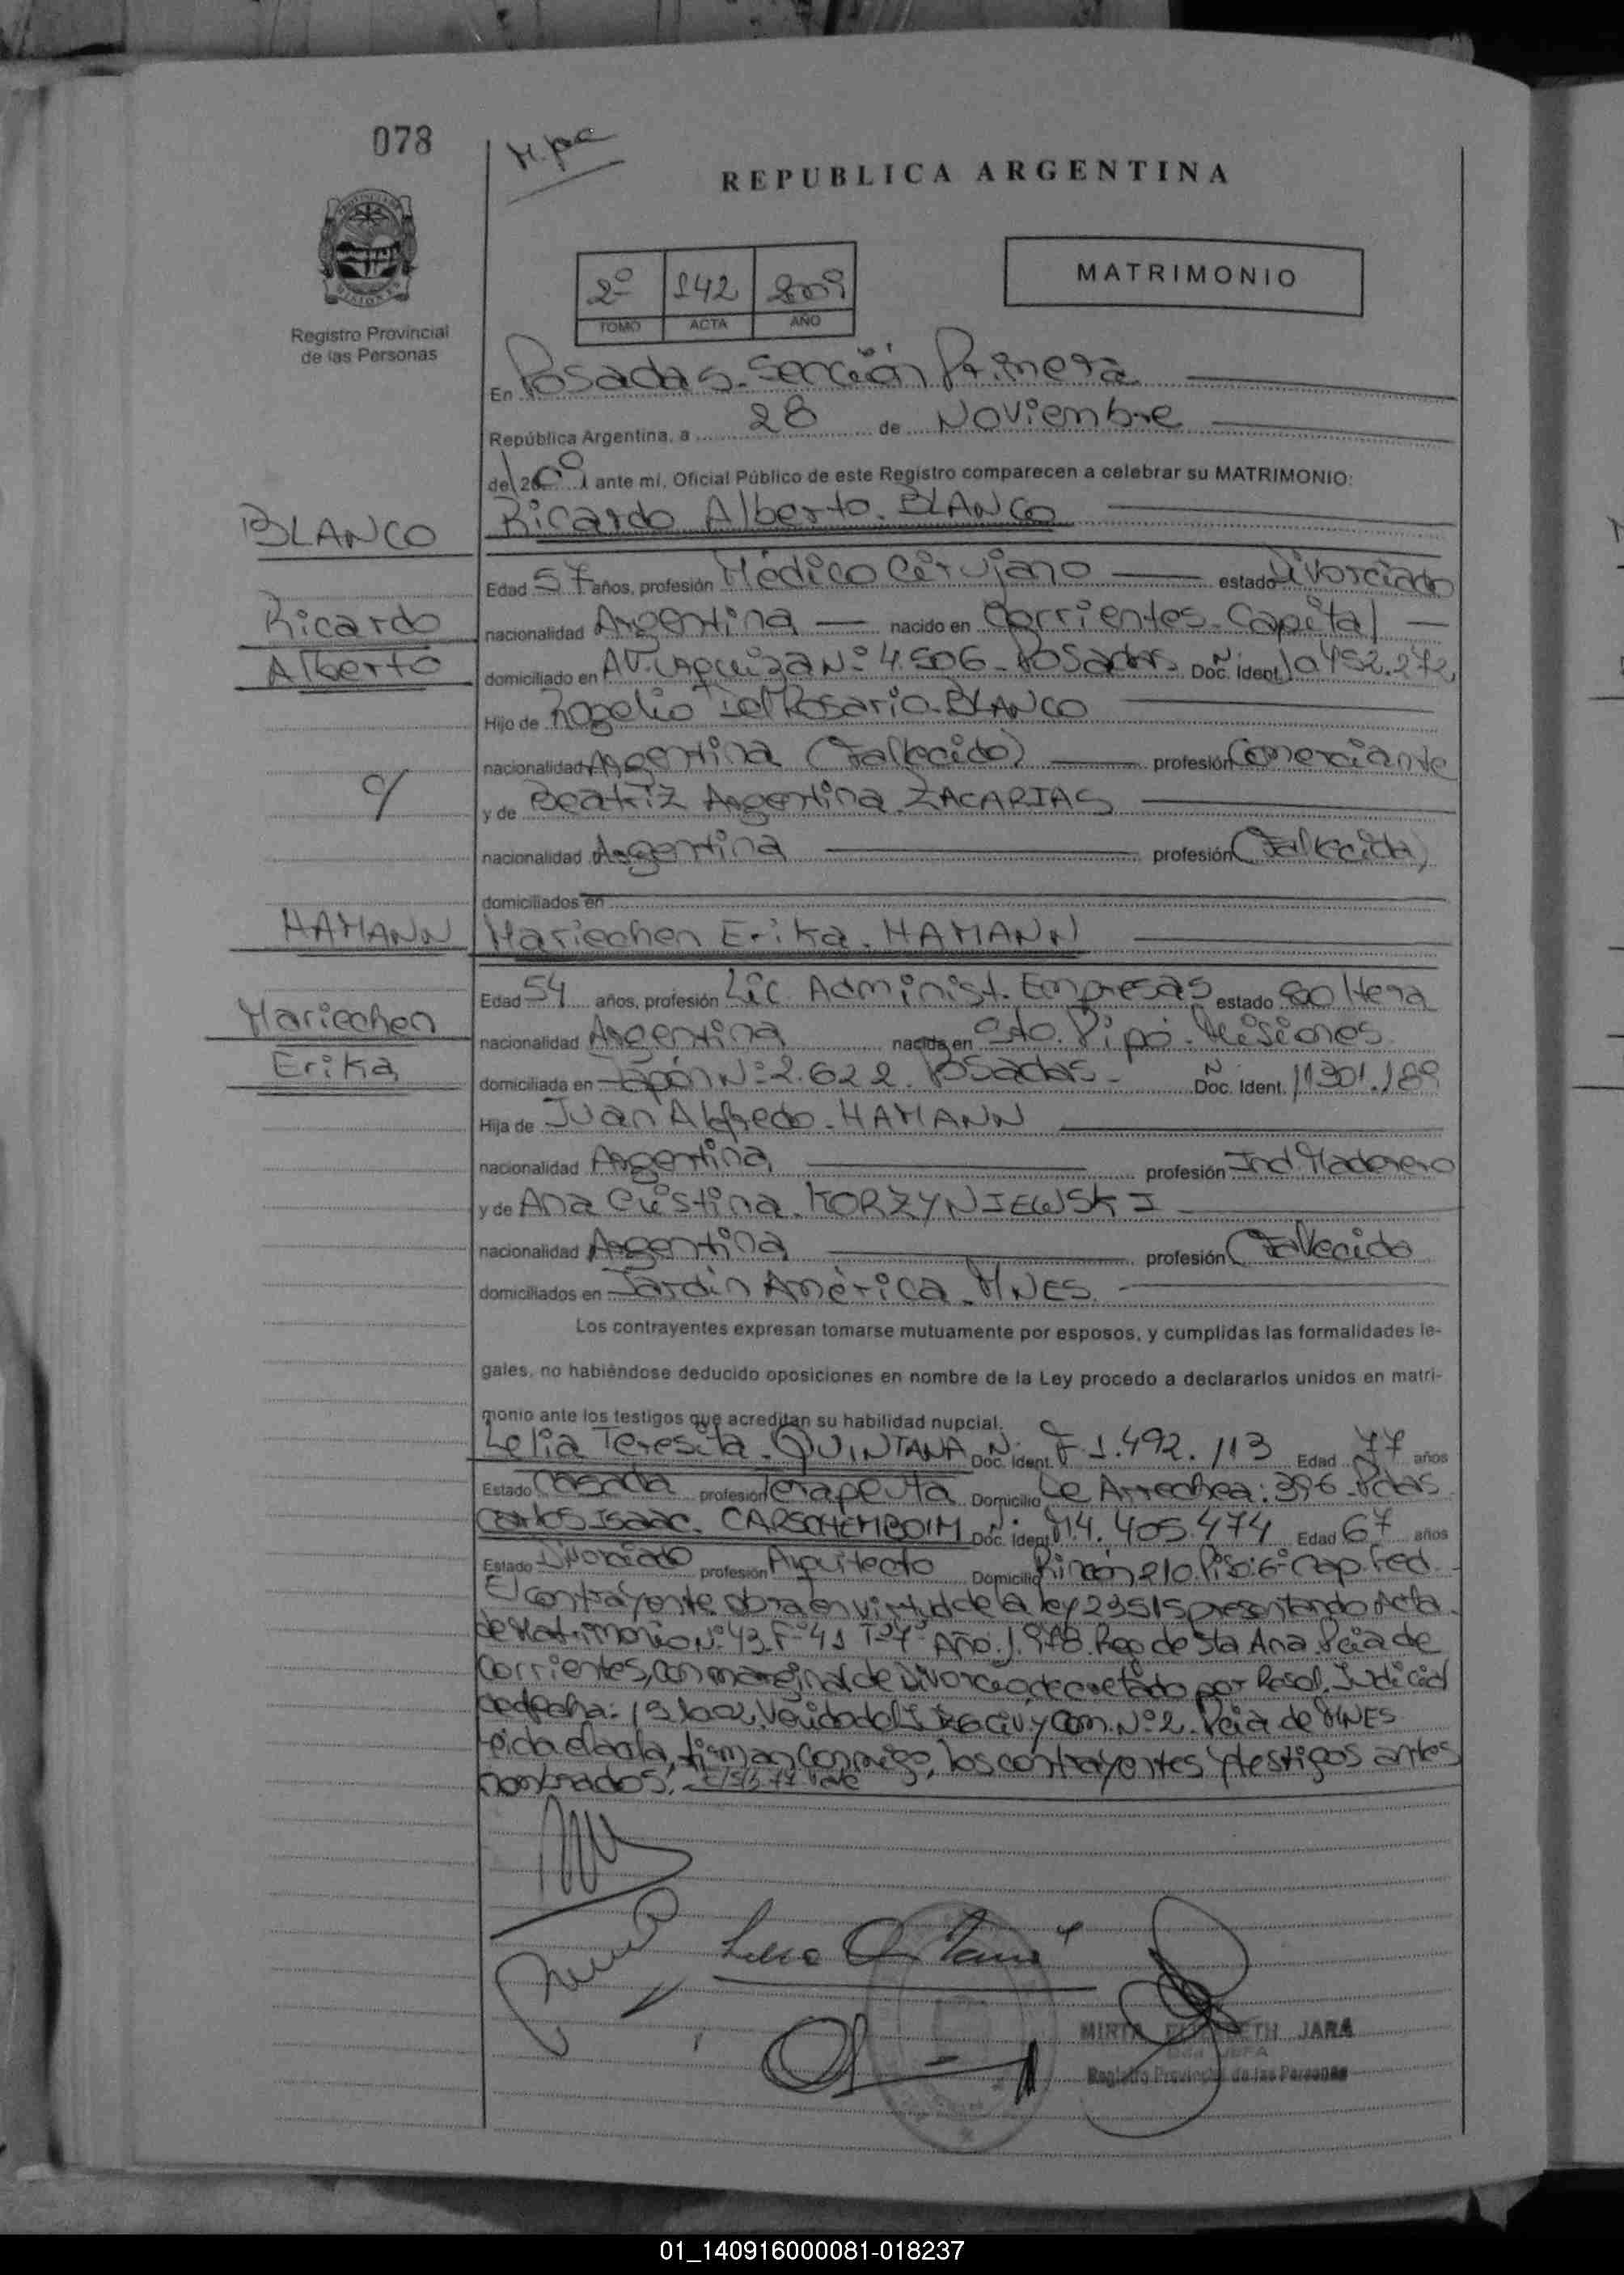 078
REPUBLICA ARGENTINA
2º 142 2009
TOMO ACTA AÑO
MATRIMONIO
Registro Provincial
de las Personas
En Posadas. Sección Primera
República Argentina, a 28 de Noviembre
del 2009 ante mí, Oficial Público de este Registro comparecen a celebrar su MATRIMONIO:
BLANCO
Ricardo Alberto. BLANCO
Edad 57 años, profesión Médico Cirujano estado Divorciado
Ricardo
nacionalidad Argentina nacido en Corrientes. Capital
Alberto
domiciliado en AV. Urquiza Nº 4.506 - Posadas. Doc. Ident. 10.452.272
Hijo de Rogelio del Rosario. BLANCO
nacionalidad Argentina (Fallecido) profesión Comerciante
c/
y de Beatriz Argentina. ZACARIAS
nacionalidad Argentina profesión (Fallecida)
domiciliados en
HAMANN
Mariechen Erika. HAMANN
Edad 54 años, profesión Lic. Administ. Empresas estado Soltera
Mariechen
nacionalidad Argentina nacida en Gdo. Pipó. Misiones
Erika
domiciliada en Japón Nº 2.622. Posadas - Doc. Ident. 11.301.189
Hija de Juan Alfredo. HAMANN
nacionalidad Argentina profesión Ind. Maderero
y de Ana Cristina. KORZYNIEWSKI
nacionalidad Argentina profesión (Fallecida
domiciliados en Jardín América. MNES.
Los contrayentes expresan tomarse mutuamente por esposos, y cumplidas las formalidades le-
gales, no habiéndose deducido oposiciones en nombre de la Ley procedo a declararlos unidos en matri-
monio ante los testigos que acreditan su habilidad nupcial.
Lelia Teresita. QUINTANA Doc. Ident. F 1.492.113 Edad 77 años
Estado Casada profesión Terapeuta Domicilio De Arrechea: 396 - Pdas
Carlos Isaac. CARSCHEMBOIM Doc. Ident. M 4.405.474 Edad 67 años
Estado Divorciado profesión Arquitecto Domicilio Rincón 210. Piso: 6º Cap. Fed.
El contrayente obra en virtud de la ley 23515 presentando Acta
de Matrimonio Nº 43 Fº 41 Año 1.978. Reg de Sta Ana. Pcia de
Corrientes, con marginal de Divorcio decretado por Resol. Judicial
de fecha: Civ. y Com. Nº 2. Pcia de MNES
Leida el acta, firman conmigo, los contrayentes y testigos antes
nombrados. Vale
MIRTA ELIZABETH JARA
Registro Provincial de las Personas
01_140916000081-018237